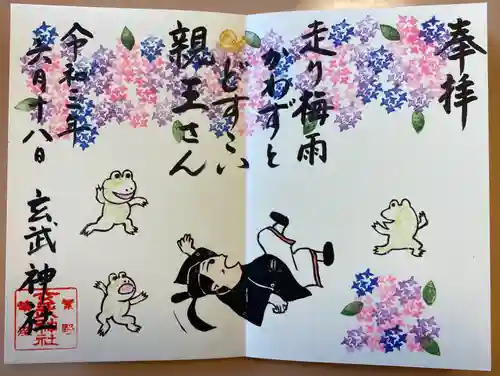 奉拝
走り梅雨
かわずと
どすこい
親王さん
令和三年
六月十八日
玄武神社